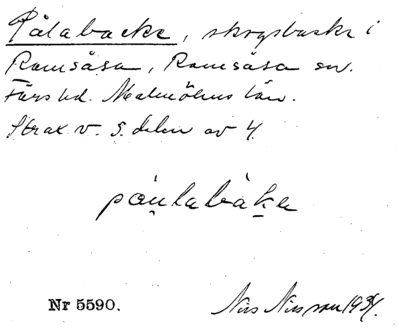 Pålabacke, skogsbacke i
Ramsåsa, Ramsåsa sn.
Färs hd. Malmöhus län.
Strax v. S. delen av 4
påulabàkа
Nr 5590.
Nils Nilsson 1934.